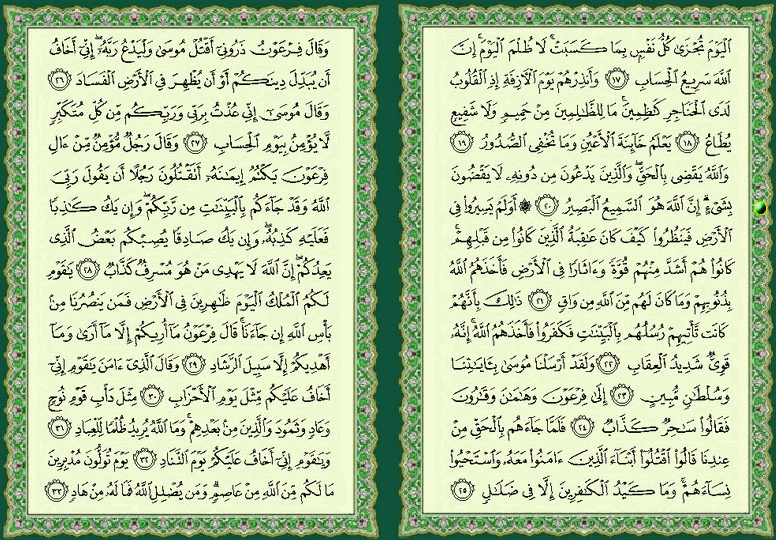 ٱلْيَوْمَ تُجْزَىٰ كُلُّ نَفْسٍۭ بِمَا كَسَبَتْ ۚ لَا ظُلْمَ ٱلْيَوْمَ ۚ إِنَّ
ٱللَّهَ سَرِيعُ ٱلْحِسَابِ ١٧ وَأَنذِرْهُمْ يَوْمَ ٱلْءَازِفَةِ إِذِ ٱلْقُلُوبُ
لَدَى ٱلْحَنَاجِرِ كَـٰظِمِينَ ۚ مَا لِلظَّـٰلِمِينَ مِنْ حَمِيمٍ وَلَا شَفِيعٍ
يُطَاعُ ١٨ يَعْلَمُ خَآئِنَةَ ٱلْأَعْيُنِ وَمَا تُخْفِى ٱلصُّدُورُ ١٩
وَٱللَّهُ يَقْضِى بِٱلْحَقِّ ۖ وَٱلَّذِينَ يَدْعُونَ مِن دُونِهِۦ لَا يَقْضُونَ
بِشَىْءٍ ۗ إِنَّ ٱللَّهَ هُوَ ٱلسَّمِيعُ ٱلْبَصِيرُ ٢٠ ۞ أَوَلَمْ يَسِيرُوا۟ فِى
ٱلْأَرْضِ فَيَنظُرُوا۟ كَيْفَ كَانَ عَـٰقِبَةُ ٱلَّذِينَ كَانُوا۟ مِن قَبْلِهِمْ ۚ
كَانُوا۟ هُمْ أَشَدَّ مِنْهُمْ قُوَّةً وَءَاثَارًا فِى ٱلْأَرْضِ فَأَخَذَهُمُ ٱللَّهُ
بِذُنُوبِهِمْ وَمَا كَانَ لَهُم مِّنَ ٱللَّهِ مِن وَاقٍ ٢١ ذَٰلِكَ بِأَنَّهُمْ
كَانَت تَّأْتِيهِمْ رُسُلُهُم بِٱلْبَيِّنَـٰتِ فَكَفَرُوا۟ فَأَخَذَهُمُ ٱللَّهُ ۚ إِنَّهُۥ
قَوِىٌّ شَدِيدُ ٱلْعِقَابِ ٢٢ وَلَقَدْ أَرْسَلْنَا مُوسَىٰ بِـَٔايَـٰتِنَا
وَسُلْطَـٰنٍ مُّبِينٍ ٢٣ إِلَىٰ فِرْعَوْنَ وَهَـٰمَـٰنَ وَقَـٰرُونَ
فَقَالُوا۟ سَـٰحِرٌ كَذَّابٌ ٢٤ فَلَمَّا جَآءَهُم بِٱلْحَقِّ مِنْ
عِندِنَا قَالُوا۟ ٱقْتُلُوٓا۟ أَبْنَآءَ ٱلَّذِينَ ءَامَنُوا۟ مَعَهُۥ وَٱسْتَحْيُوا۟
نِسَآءَهُمْ ۚ وَمَا كَيْدُ ٱلْكَـٰفِرِينَ إِلَّا فِى ضَلَـٰلٍ ٢٥
وَقَالَ فِرْعَوْنُ ذَرُونِىٓ أَقْتُلْ مُوسَىٰ وَلْيَدْعُ رَبَّهُۥٓ ۖ إِنِّىٓ أَخَافُ
أَن يُبَدِّلَ دِينَكُمْ أَوْ أَن يُظْهِرَ فِى ٱلْأَرْضِ ٱلْفَسَادَ ٢٦
وَقَالَ مُوسَىٰٓ إِنِّى عُذْتُ بِرَبِّى وَرَبِّكُم مِّن كُلِّ مُتَكَبِّرٍ
لَّا يُؤْمِنُ بِيَوْمِ ٱلْحِسَابِ ٢٧ وَقَالَ رَجُلٌ مُّؤْمِنٌ مِّنْ ءَالِ
فِرْعَوْنَ يَكْتُمُ إِيمَـٰنَهُۥٓ أَتَقْتُلُونَ رَجُلًا أَن يَقُولَ رَبِّىَ
ٱللَّهُ وَقَدْ جَآءَكُم بِٱلْبَيِّنَـٰتِ مِن رَّبِّكُمْ ۖ وَإِن يَكُ كَـٰذِبًا
فَعَلَيْهِ كَذِبُهُۥ ۖ وَإِن يَكُ صَادِقًا يُصِبْكُم بَعْضُ ٱلَّذِى
يَعِدُكُمْ ۖ إِنَّ ٱللَّهَ لَا يَهْدِى مَنْ هُوَ مُسْرِفٌ كَذَّابٌ ٢٨ يَـٰقَوْمِ
لَكُمُ ٱلْمُلْكُ ٱلْيَوْمَ ظَـٰهِرِينَ فِى ٱلْأَرْضِ فَمَن يَنصُرُنَا مِنۢ
بَأْسِ ٱللَّهِ إِن جَآءَنَا ۚ قَالَ فِرْعَوْنُ مَآ أُرِيكُمْ إِلَّا مَآ أَرَىٰ وَمَآ
أَهْدِيكُمْ إِلَّا سَبِيلَ ٱلرَّشَادِ ٢٩ وَقَالَ ٱلَّذِىٓ ءَامَنَ يَـٰقَوْمِ إِنِّىٓ
أَخَافُ عَلَيْكُم مِّثْلَ يَوْمِ ٱلْأَحْزَابِ ٣٠ مِثْلَ دَأْبِ قَوْمِ نُوحٍ
وَعَادٍ وَثَمُودَ وَٱلَّذِينَ مِنۢ بَعْدِهِمْ ۚ وَمَا ٱللَّهُ يُرِيدُ ظُلْمًا لِّلْعِبَادِ ٣١
وَيَـٰقَوْمِ إِنِّىٓ أَخَافُ عَلَيْكُمْ يَوْمَ ٱلتَّنَادِ ٣٢ يَوْمَ تُوَلُّونَ مُدْبِرِينَ
مَا لَكُم مِّنَ ٱللَّهِ مِنْ عَاصِمٍ ۗ وَمَن يُضْلِلِ ٱللَّهُ فَمَا لَهُۥ مِنْ هَادٍ ٣٣